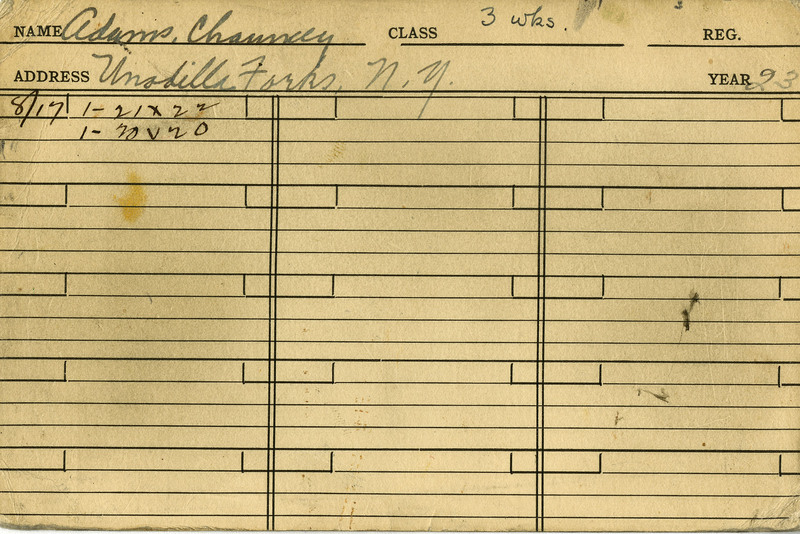 NAME Adams, Chauncey CLASS 3 wks. REG.
ADDRESS Unadilla Forks, N.Y. YEAR 23
8/17 1-21x22
1-20x20